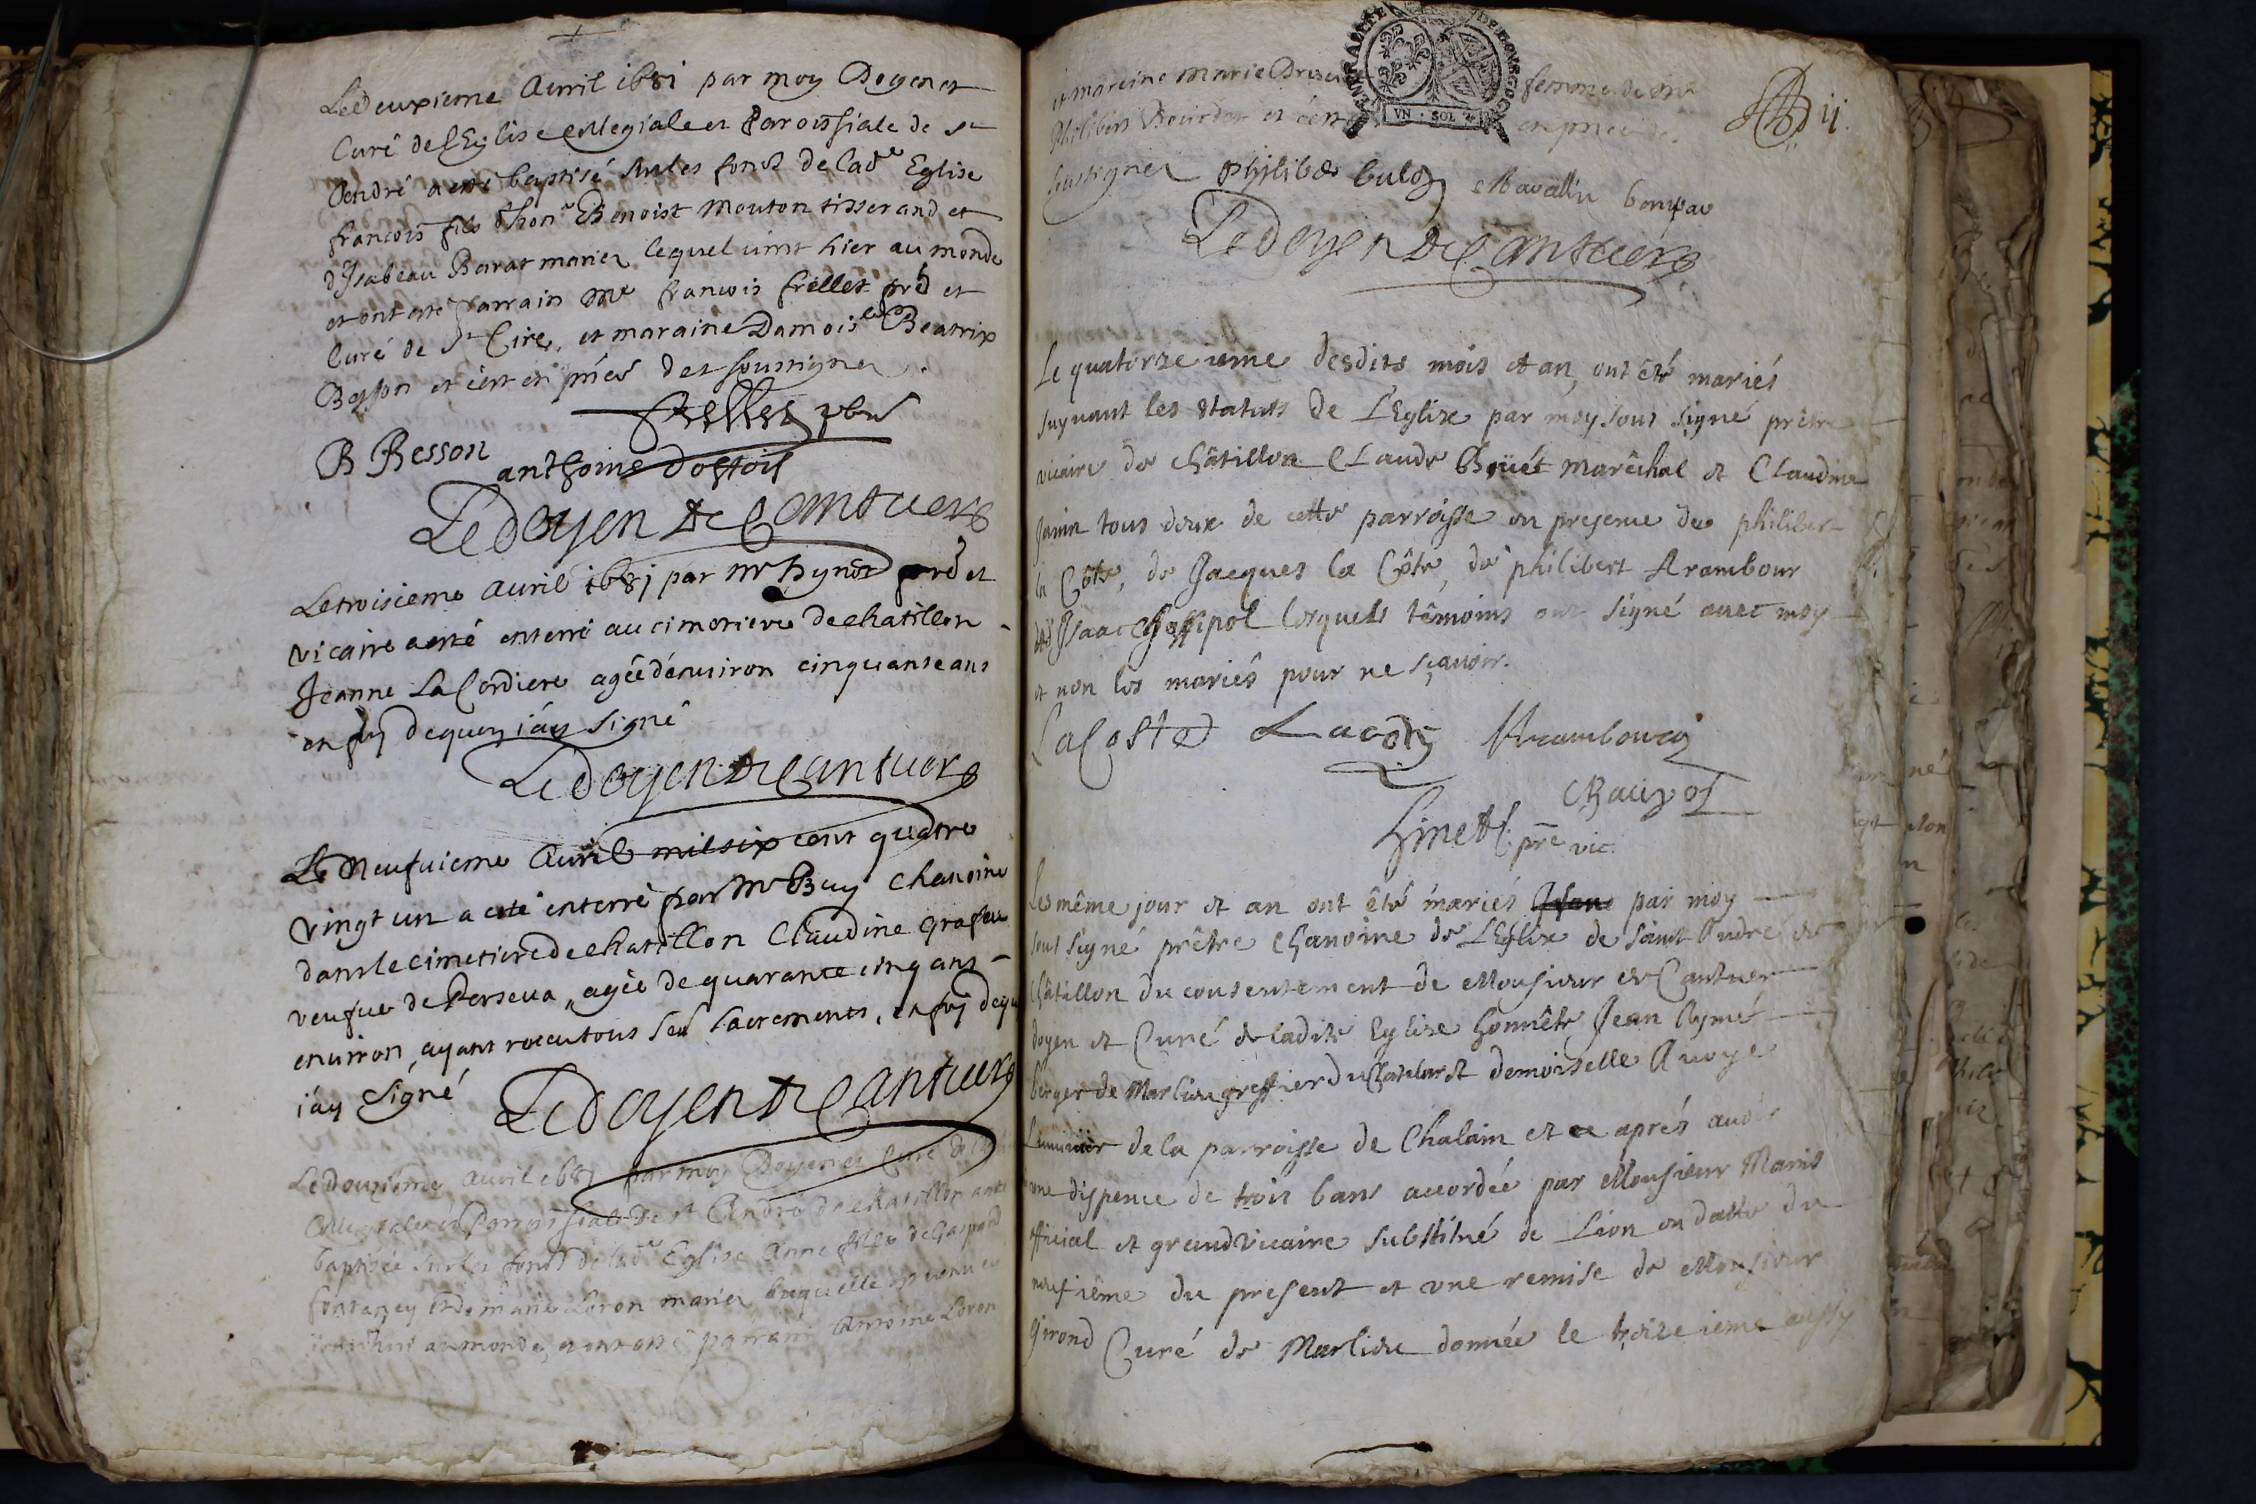 Le deuxieme Avril 1681 par moy Doyen et
Curé de l'Eglise collegiale et Paroissiale de St
André a esté baptisé sur les fonds de lade Eglise
francois fils d'hon. Benoist Mouton tisserand et
d'Isabeau Barat mariez lequel vint hier au monde
et ont esté parrain Mre francois frillet prb et
Curé de St Cire, et maraine Damoislle Beatrix
Besson et s'ert en pnces det soussignez
frillet pbr
B Besson
anthoine dostois
Le doyen De Cantuers
Le troisieme Avril 1681 par Mr hynet prb et
vicaire a esté enterré au cimetiere de chatillon
Jeanne La Cordiere agée d'environ cinquante ans
en foy de quoy j'ay signé
Le doyen De Cantuers
Le Neufuieme Avril mil six cent quatre
vingt un a esté enterré par Mr Buy chanoine
dans le cimetiere de chatillon Claudine
veufue de Perseva, agée de quarante cinq ans
environ, ayant receu tous ses sacrements, en foy dequ
j'ay signé
Le doyen De Cantuers
Le douzieme Avril 1681 par moy Doyen et Curé de
Collegiale et Parroissiale de St André de chatillon a esté
baptisée sur les fonds de lade Eglise Anne fille de Gaspard
fontaney et de marie Loron mariez laquelle est venue
aujourdhui au monde, et ont esté parrain Antoine Loron
et mareine Marie femme de Mr
Philibert Bourdon et en pnce de
soussignez Philibe bulo
Le doyen De Cantuers
ii
Le quatorzieme desdits mois et an, ont êté mariés
suyuant les statuts de L'Eglise par moy sous signé prêtre
vicaire de châtillon Claude Boüét marêchal et Claudine
Janin tous deux de cette parroisse en presence de philibert
la Côte, de Jacques la Côte, de philibert Arambour
Isaac lesquels têmoins ont signé avec moy
et non les mariés pour ne sçauoir.
LaCoste Lacoste Arambourg
hinet pre vic.
Les même jour et an ont êté mariés par moy
sous signé prêtre chanoine de L'Eglise de saint André de
châtillon du consentement de Monsieur de Cantuer
doyen et Curé de ladite Eglise honnête Jean Aymé
berger de Marlieu greffier du et demoiselle Avoye
de la parroisse de Chalain et ce aprés auoir
une dispence de trois bans accordée par Monsieur Manis
official et grand vicaire substitué de Lion en datte du
neufiême du present et vne remise de Monsieur
Girond Curé de Marlieu donnée le treizieme aussy